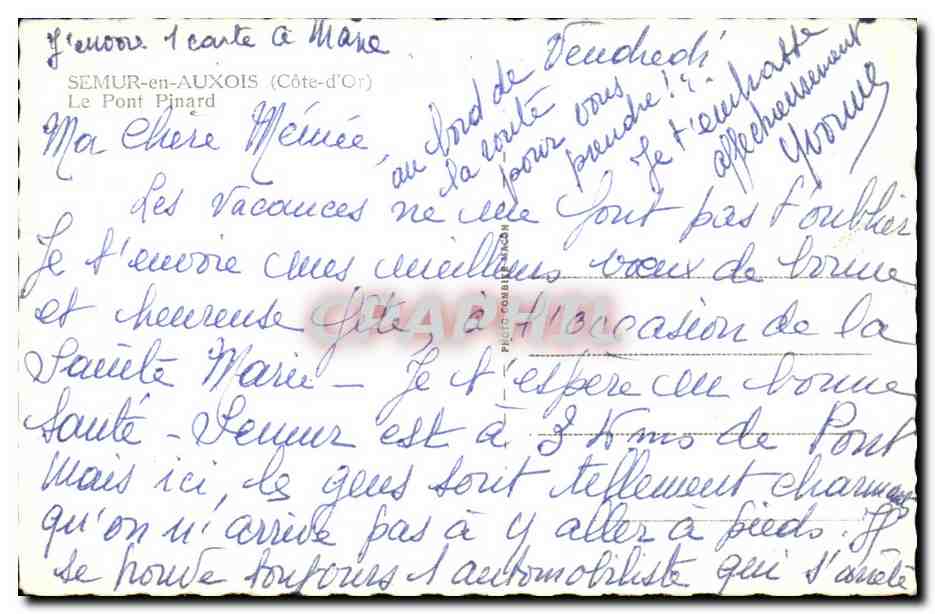 J'envoie 1 carte à Marie
SEMUR-en-AUXOIS (Côte-d'Or)
Le Pont Pinard
Vendredi
Ma Chère Mémée,
Les vacances ne me font pas t'oublier
Je t'envoie mes meilleurs vœux de bonne
et heureuse fête, à l'occasion de la
Sainte Marie - Je t'espère en bonne
santé - Semur est à 3 Kms de Pont
mais ici, les gens sont tellement charmants
qu'on n'arrive pas à y aller à pieds. Il
se trouve toujours 1 automobiliste qui s'arrête
au bord de
la route
pour vous
prendre !!
Je t'embrasse
affectueusement
Yvonne
PHOTO COMBIER MACON
CPAPHIL